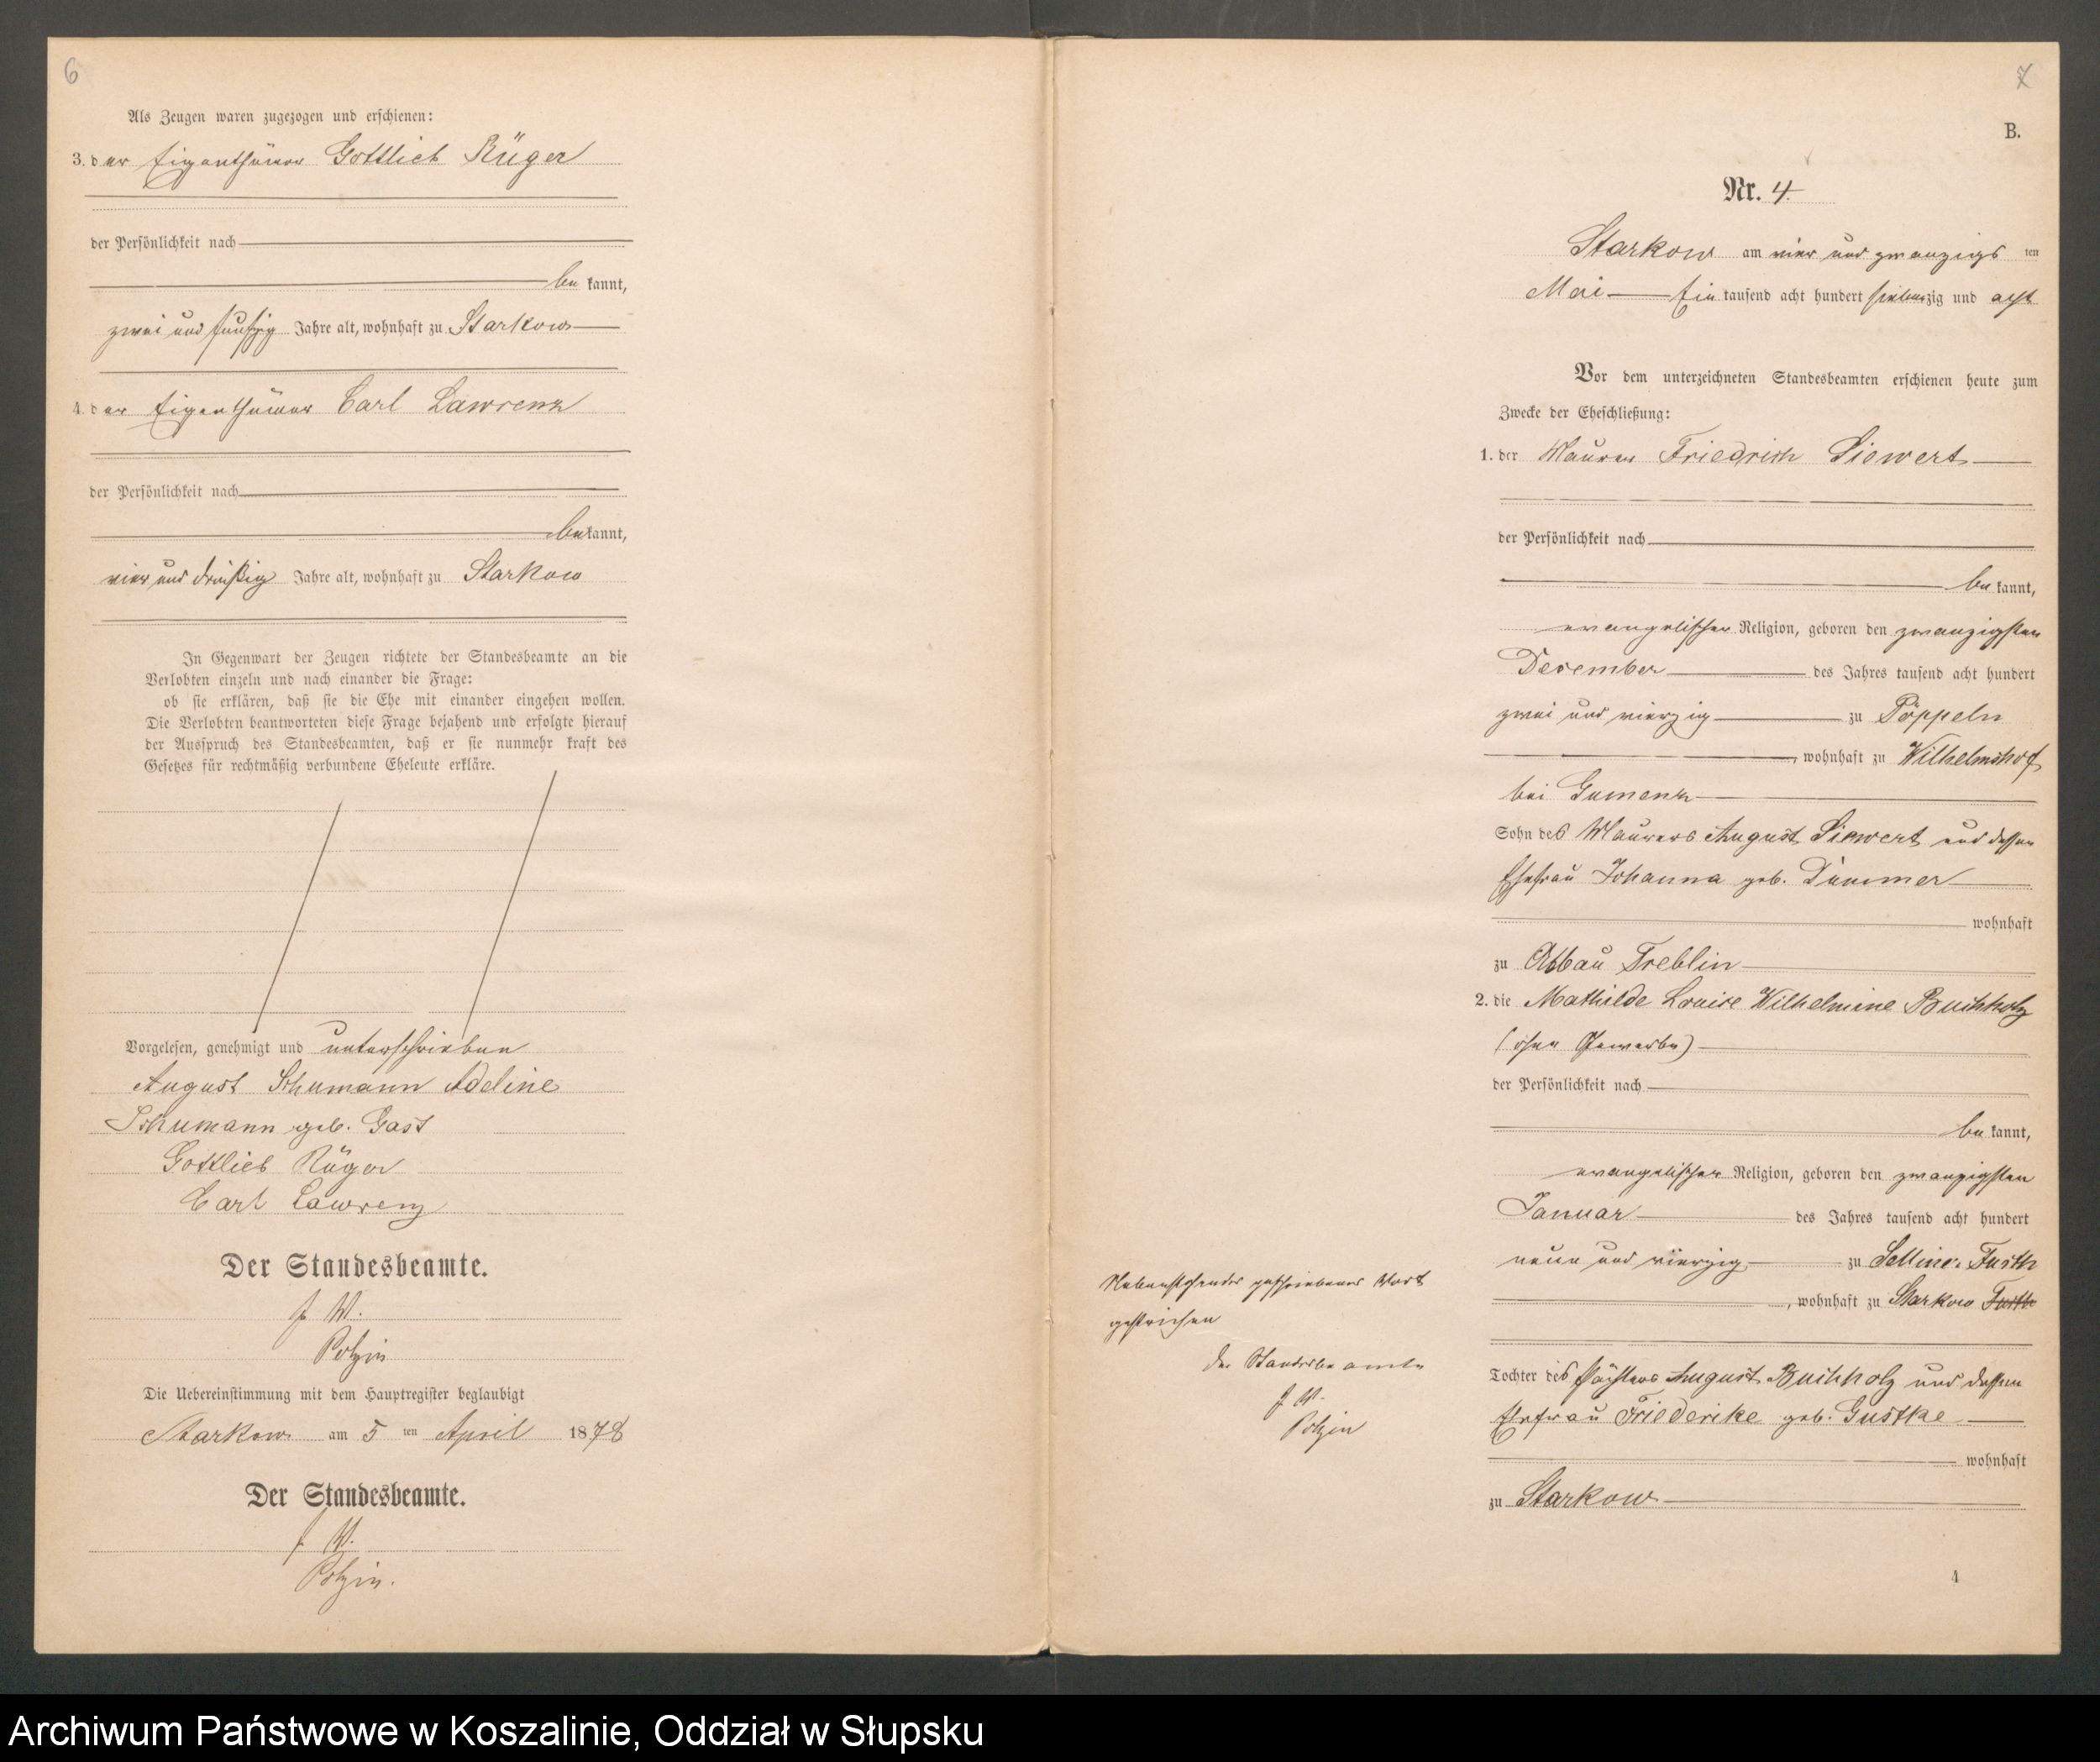 6
Als Zeugen waren zugezogen und erschienen:
3. der Eigenthümer Gottlieb Rüger
der Persönlichkeit nach
be kannt,
zwei und funfzig Jahre alt, wohnhaft zu Starkow
4. der Eigenthümer Carl Lawrenz
der Persönlichkeit nach
be kannt,
vier und dreißig Jahre alt, wohnhaft zu Starkow
In Gegenwart der Zeugen richtete der Standesbeamte an die
Verlobten einzeln und nach einander die Frage:
ob sie erklären, daß sie die Ehe mit einander eingehen wollen.
Die Verlobten beantworteten diese Frage bejahend und erfolgte hierauf
der Ausspruch des Standesbeamten, daß er sie nunmehr kraft des
Gesetzes für rechtmäßig verbundene Eheleute erkläre.
Vorgelesen, genehmigt und unterschrieben
August Schumann Adeline
Schumann geb. Gast
Gottlieb Rüger
Carl Lawrenz
Der Standesbeamte.
J. V.
Polzin
Die Uebereinstimmung mit dem Hauptregister beglaubigt
Starkow am 5 ten April 1878
Der Standesbeamte.
J. V.
Polzin.
7
B.
Nr. 4.
Starkow am vier und zwanzigs ten
Mai Ein tausend acht hundert siebenzig und acht
Vor dem unterzeichneten Standesbeamten erschienen heute zum
Zwecke der Eheschließung:
1. der Maurer Friedrich Siewert
der Persönlichkeit nach
be kannt,
evangelischer Religion, geboren den zwanzigsten
December des Jahres tausend acht hundert
zwei und vierzig zu Pöppeln
, wohnhaft zu Wilhelmshof
bei Gumenz
Sohn des Maurers August Siewert und dessen
Ehefrau Johanna geb. Dummer
wohnhaft
zu Abbau Treblin
2. die Mathilde Louise Wilhelmine Buchholz
(ohne Gewerbe)
der Persönlichkeit nach
be kannt,
evangelischer Religion, geboren den zwanzigsten
Januar des Jahres tausend acht hundert
neun und vierzig zu
, wohnhaft zu Starkow
Tochter des Pächters August Buchholz und dessen
Ehefrau Friederike geb. Gustke
wohnhaft
zu Starkow
4
Nebenstehendes geschriebenes Wort
gestrichen
Der Standesbeamte
J. V.
Polzin
Archiwum Państwowe w Koszalinie, Oddział w Słupsku